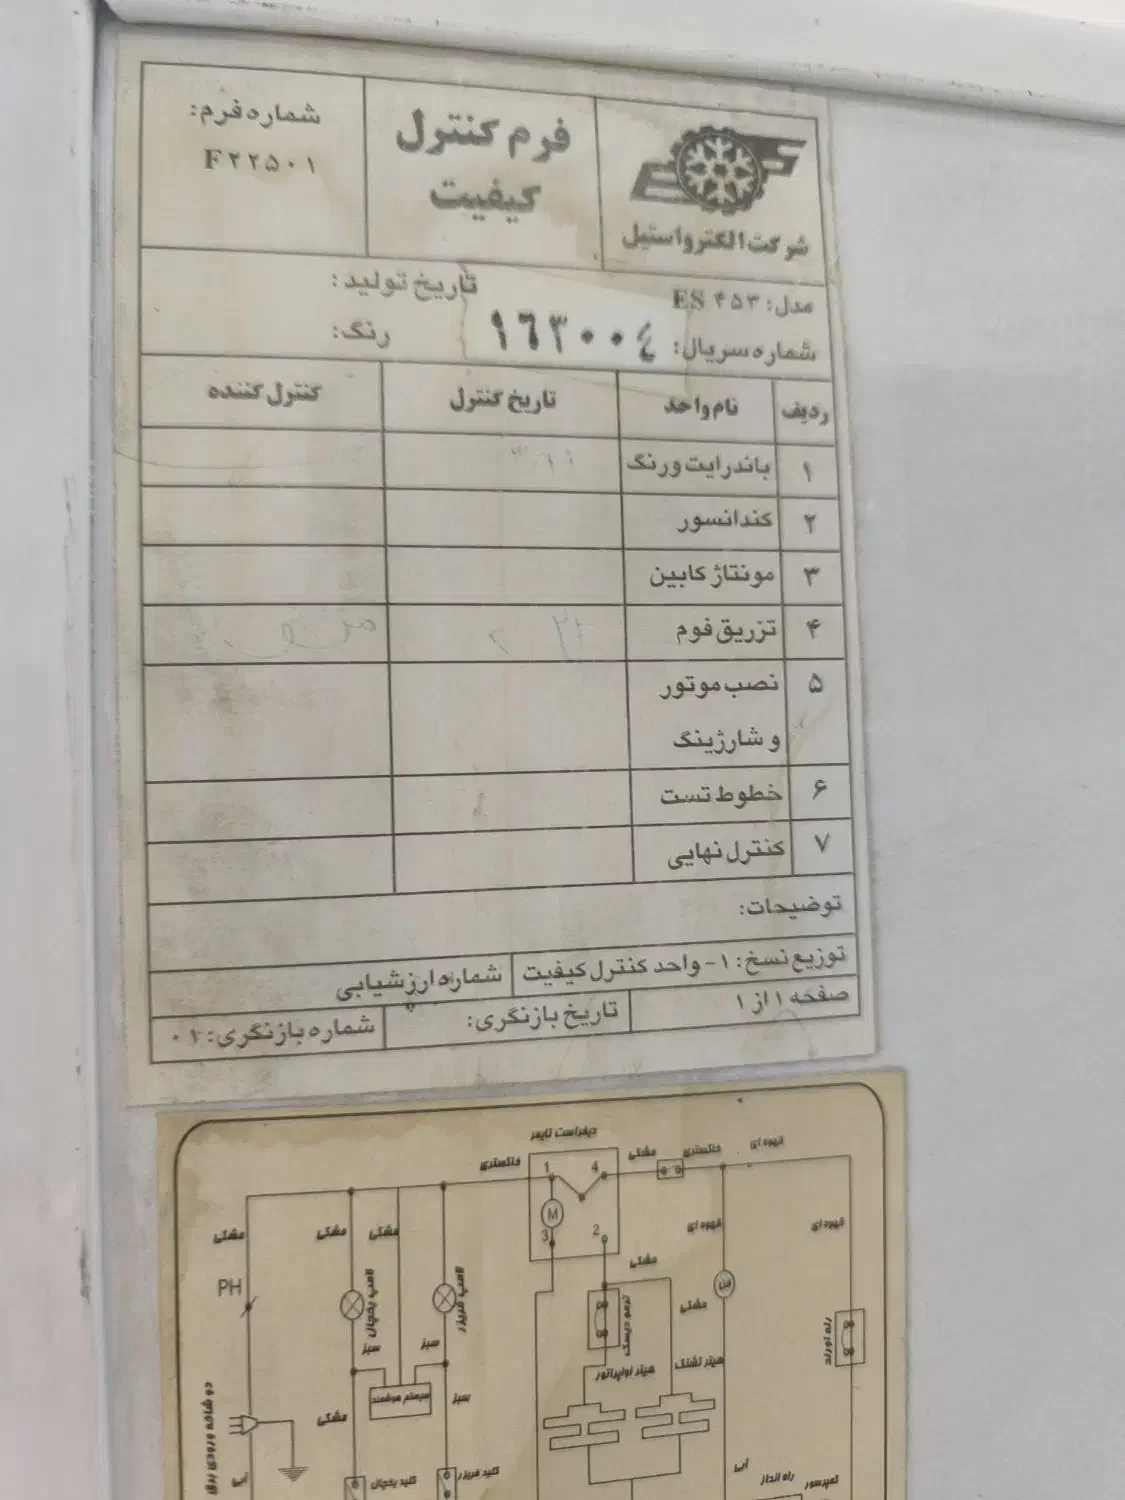 شرکت الکترواستیل
فرم کنترل
کیفیت
شماره فرم:
F۲۲۵۰۱
مدل: ES ۴۵۳
تاریخ تولید:
شماره سریال: ۱۶۳۰۰۴
رنگ:
ردیف نام واحد تاریخ کنترل کنترل کننده
۱ باندرایت ورنگ
۲ کندانسور
۳ مونتاژ کابین
۴ تزریق فوم
۵ نصب موتور
و شارژینگ
۶ خطوط تست
۷ کنترل نهایی
توضیحات:
توزیع نسخ: ۱- واحد کنترل کیفیت شماره ارزشیابی
صفحه ۱ از ۱ تاریخ بازنگری: شماره بازنگری: ۰۱
دیفراست تایمر
قهوه ای
خاکستری
مشکی
خاکستری
1 4
M
3 2
مشکی
مشکی
مشکی
قهوه ای
قهوه ای
PH
لامپ یخچال
لامپ فریزر
مشکی
مشکی
ترمو دیسک
فن
سبز
سبز
هیتر اواپراتور
هیتر تشتک
سیستم هوشمند
سبز
مشکی
کلید یخچال
کلید فریزر
آبی
آبی
راه انداز
کمپرسور